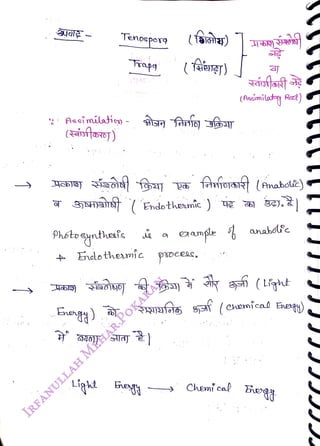 अपवाद -
Tenospora (गिलोय)
Trapa (सिंघाड़ा)
प्रकाश संश्लेषी
जड़े
या
स्वांगीकारी जड़े
(Assimilatory Root)
Assimilation - भोजन निर्माण प्रक्रिया
(स्वांगीकरण)
→ प्रकाश संश्लेषी क्रिया एक निर्माणकारी (Anabolic)
व ऊष्माशोषी (Endothermic) पद का उदा. है|
Photosynthesis is a example of anabolic
+ Endothermic process.
→ प्रकाश संश्लेषण की क्रिया में सौर ऊर्जा (Light
Energy) को रासायनिक ऊर्जा (Chemical Energy)
में बदला जाता है|
Light Energy → Chemical Energy
IRFANULLAH MEHAR, POKARAN